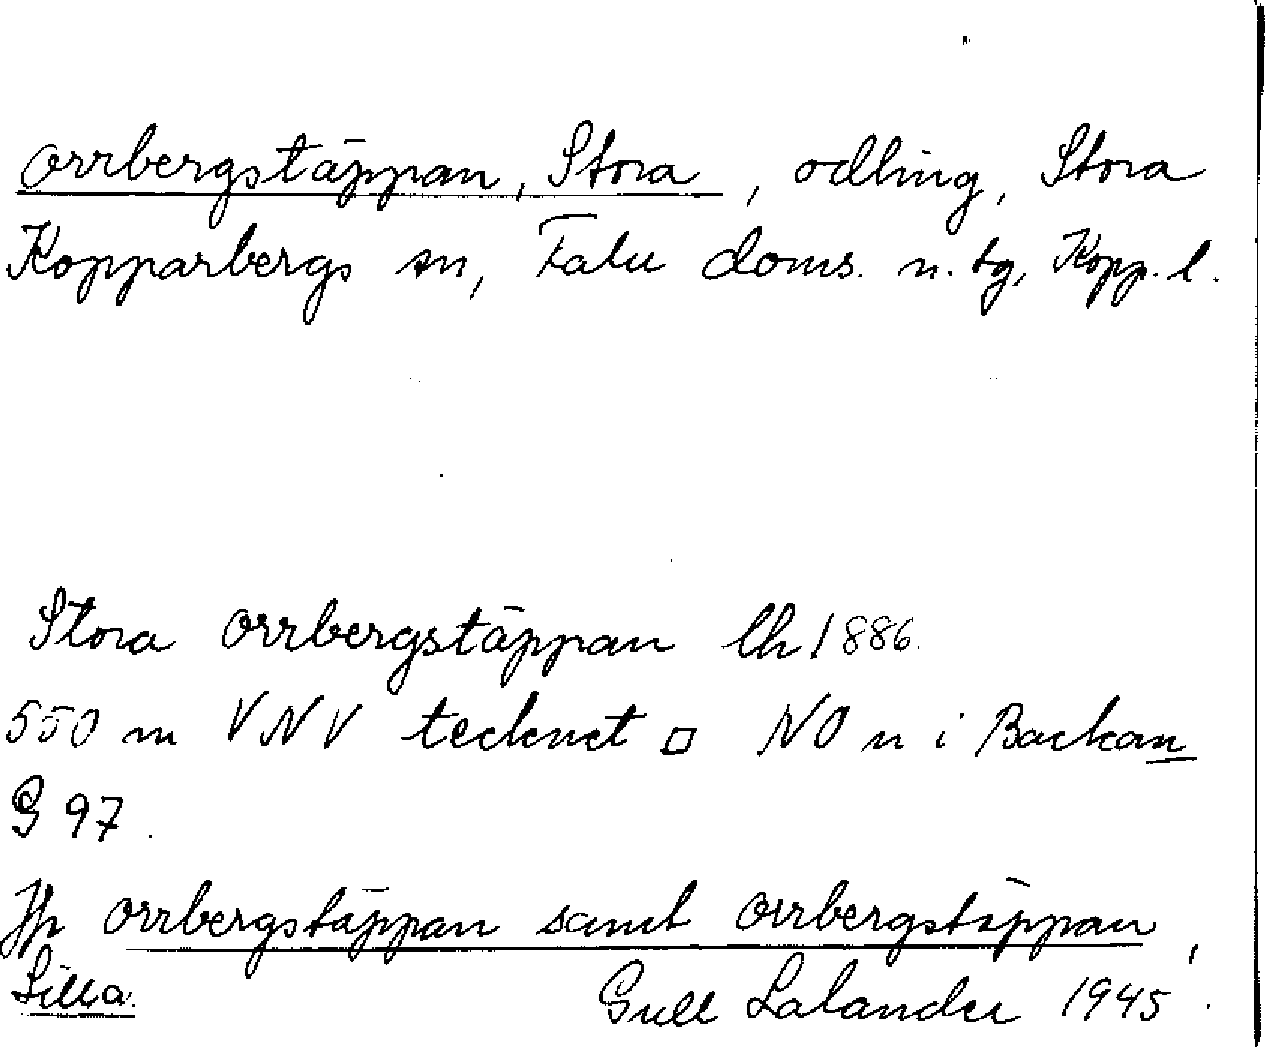 Orrbergstäppan, Stora, odling, Stora
Kopparbergs sn, Falu doms. n. tg, Kopp. l.
Stora Orrbergstäppan lh 1886.
550 m VNV tecknet □ NO n i Backan
G 97.
Jfr Orrbergstäppan samt Orrbergstäppan,
Lilla.
Gull Lalander 1945.